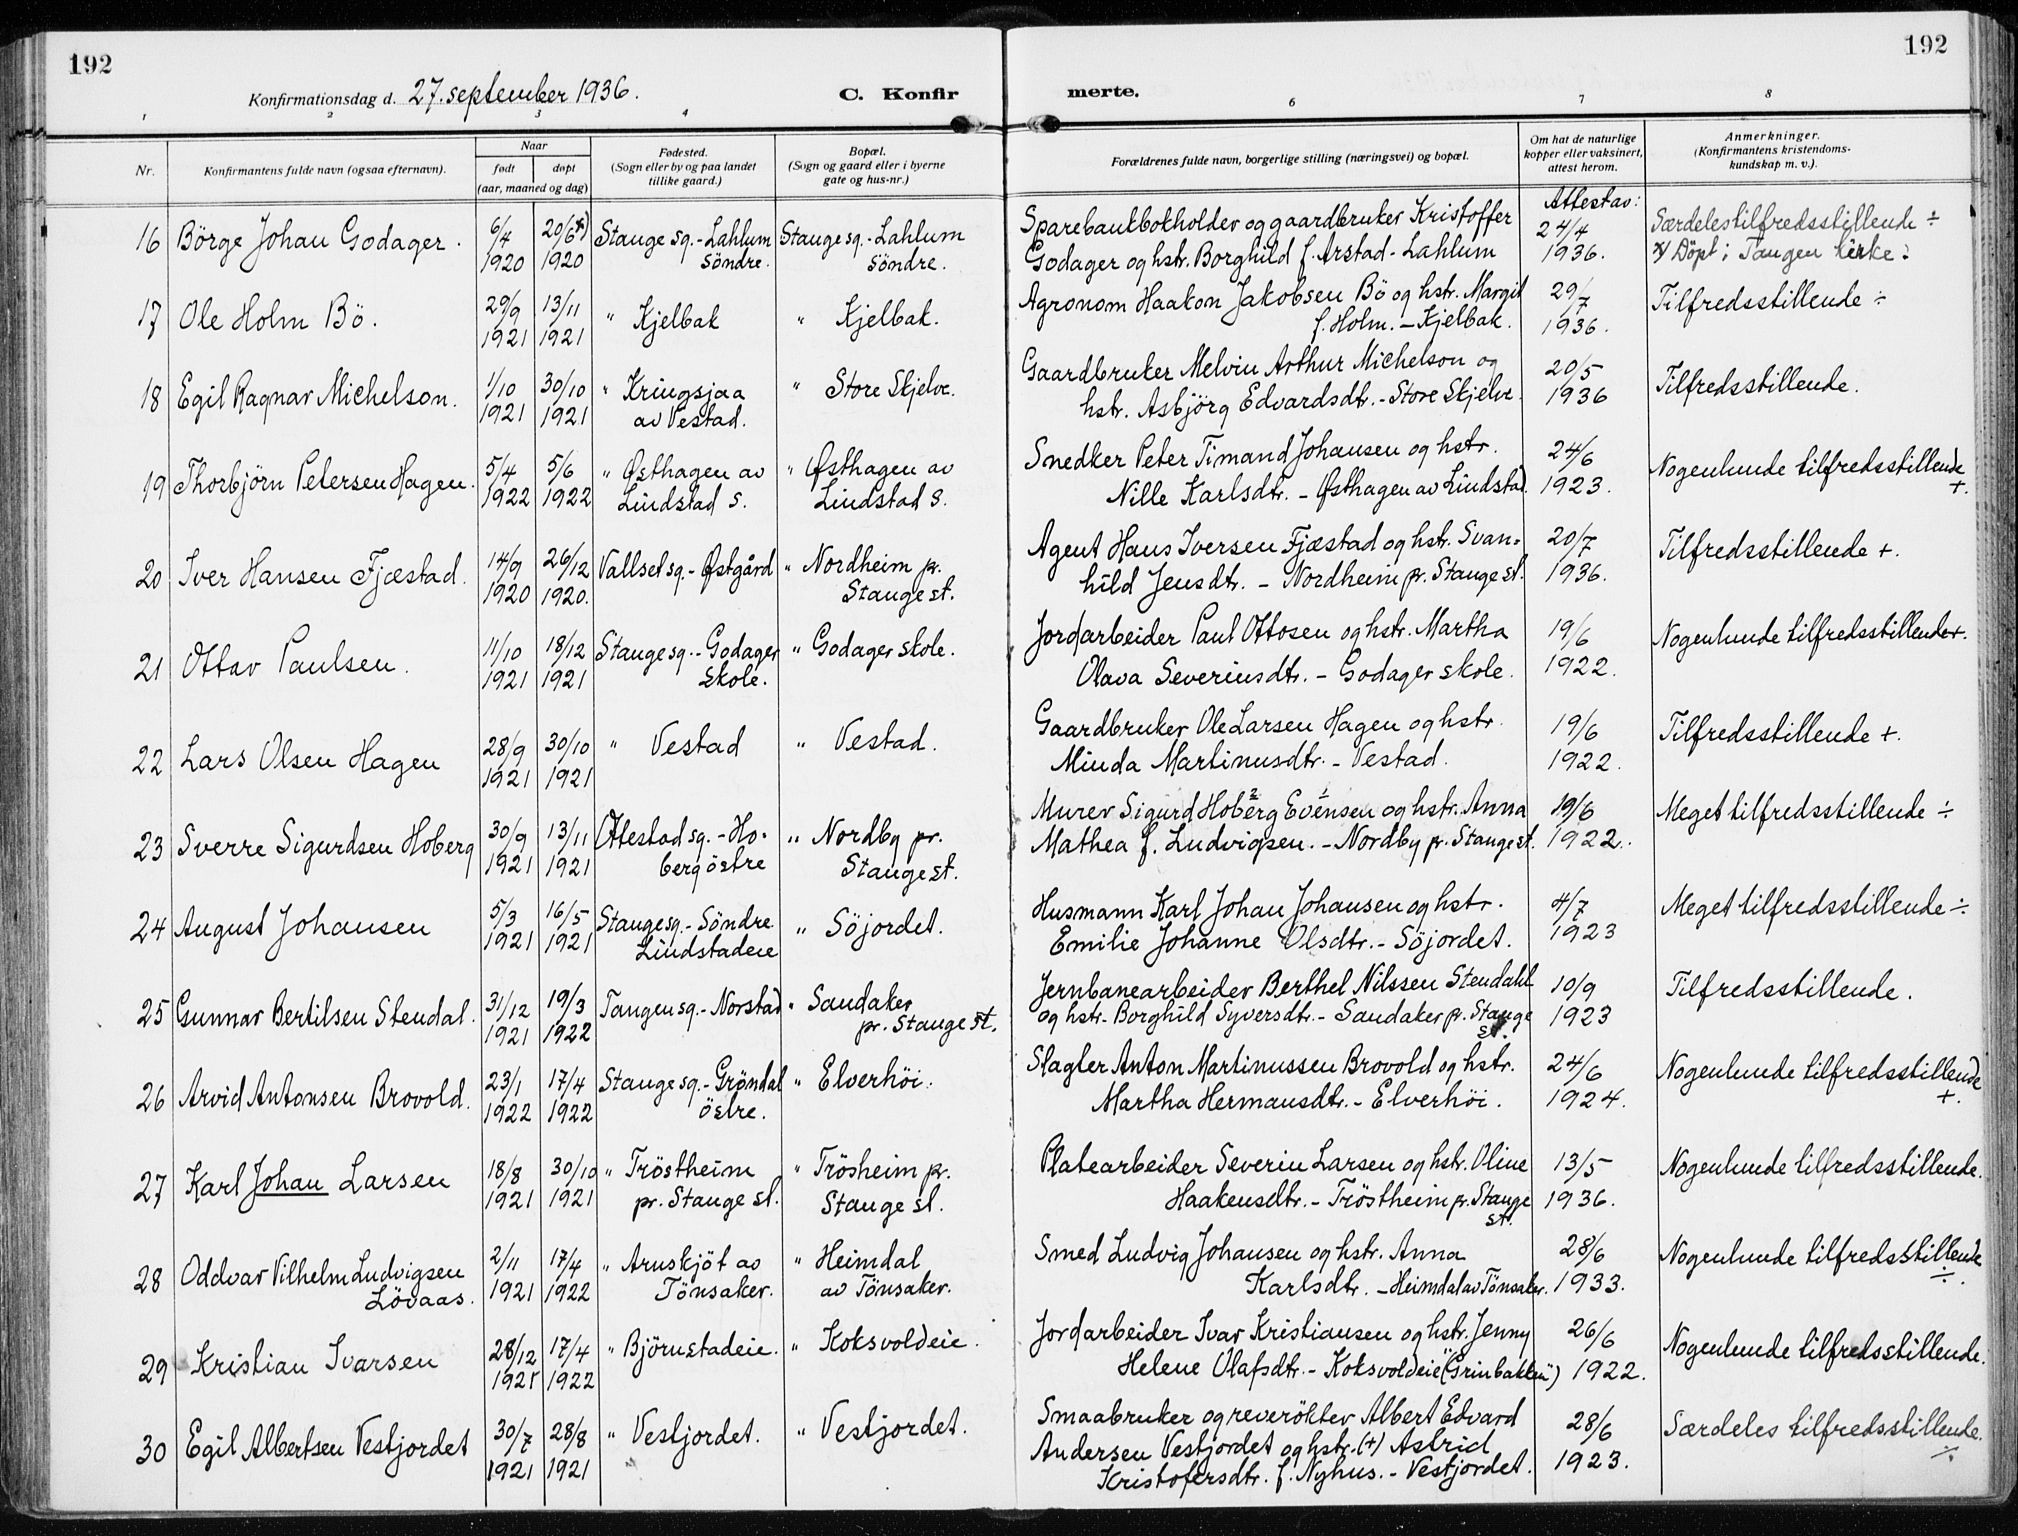 192
192
Konfirmationsdag d. 27. september 1936.
C. Konfir
merte.
1 2 3 4 6 7 8
Nr.
Konfirmantens fulde navn (ogsaa efternavn).
Naar
født døpt
(aar, maaned og dag)
Fødested.
(Sogn eller by og paa landet
tillike gaard.)
Bopæl.
(Sogn og gaard eller i byerne
gate og hus-nr.)
Forældrenes fulde navn, borgerlige stilling (næringsvei) og bopæl.
Om hat de naturlige
kopper eller vaksinert,
attest herom.
Anmerkninger.
(Konfirmantens kristendoms-
kundskap m. v.).
Attest av:
16 Börge Johan Godager. 6/4 20/6 x) Stange sg. - Lahlum Stange sg. - Lahlum Sparebankbokholder og gaardbruker Kristoffer 24/4 Særdeles tilfredsstillende ÷
1920 1920 söndre. söndre. Godager og hstr. Borghild f. Arstad - Lahlum 1936. x) Döpt i Tangen kirke.
17 Ole Holm Bö. 29/9 13/11 " Kjelbak " Kjelbak. Agronom Haakon Jakobsen Bö og hstr. Margit 29/7 Tilfredsstillende ÷
1921 1921 f. Holm. - Kjelbak. 1936.
18 Egil Ragnar Michelson. 1/10 30/10 " Kringsjaa " Store Skjelve. Gaardbruker Melvin Arthur Michelson og 20/5 Tilfredsstillende.
1921 1921 av Vestad. hstr. Asbjörg Edvardsdtr. - Store Skjelve. 1936
19 Thorbjörn Petersen Hagen. 5/4 5/6 " Østhagen av " Østhagen av Snedker Peter Timand Johansen og hstr. 24/6 Nogenlunde tilfredsstillende
1922 1922 Lindstad s. Lindstad s. Nille Karlsdtr. - Østhagen av Lindstad. 1923. +.
20 Iver Hansen Fjæstad. 14/9 26/12 Vallset sg. - Østgård " Nordheim pr. Agent Hans Iversen Fjæstad og hstr. Svan- 20/7 Tilfredsstillende +.
1920 1920. Stange st. hild Jensdtr. - Nordheim pr. Stange st. 1936.
21 Ottar Paulsen. 11/10 18/12 Stange sg. - Godager " Godager skole. Jordarbeider Paul Ottosen og hstr. Martha 19/6 Nogenlunde tilfredsstillende +.
1921 1921 skole. Olava Severinsdtr. - Godager skole. 1922.
22 Lars Olsen Hagen 28/9 30/10 " Vestad " Vestad. Gaardbruker Ole Larsen Hagen og hstr. 19/6 Tilfredsstillende +.
1921 1921 Minda Martinusdtr. - Vestad. 1922.
23 Sverre Sigurdsen Hoberg 30/9 13/11 Ottestad sg. - Ho- " Nordby pr. Murer Sigurd Hoberg 2 Evensen 1 og hstr. Anna 19/6 Meget tilfredsstillende ÷
1921 1921 berg östre Stange st. Mathea f. Ludvigsen. - Nordby pr. Stange st. 1922.
24 August Johansen 5/3 16/5 Stange sg. - Söndre " Söjordet. Husmann Karl Johan Johansen og hstr. 4/7 Meget tilfredsstillende ÷
1921 1921 Lindstadeie Emilie Johanne Olsdtr. - Söjordet. 1923
25 Gunnar Bertilsen Stendal. 31/12 19/3 Tangen sg. - Norstad " Sandaker Jernbanearbeider Berthel Nilssen Stendahl 10/9 Tilfredsstillende.
1921 1922 pr. Stange st. og hstr. Borghild Syversdtr. - Sandaker pr. Stange 1923
st.
26 Arvid Antonsen Brovold. 23/1 17/4 Stange sg. - Gröndal " Elverhöi. Slagter Anton Martinussen Brovold og hstr. 24/6 Nogenlunde tilfredsstillende
1922 1922 östre. Martha Hermansdtr. - Elverhöi. 1924. +.
27 Karl Johan Larsen 18/8 30/10 " Tröstheim " Trösheim pr. Platearbeider Severin Larsen og hstr. Oline 13/5 Nogenlunde tilfredsstillende.
1921 1921 pr. Stange st. Stange st. Haakensdtr. - Tröstheim pr. Stange 1936.
st.
28 Oddvar Vilhelm Ludvigsen 2/11 17/4 " Arnskjöt av " Heimdal Smed Ludvig Johansen og hstr. Anna 28/6 Nogenlunde tilfredsstillende
Lövaas. 1921 1922 Tönsaker. av Tönsaker. Karlsdtr. - Heimdal av Tönsaker. 1933. ÷.
29 Kristian Ivarsen 28/12 17/4 " Björnstadeie. " Koksvoldeie. Jordarbeider Ivar Kristiansen og hstr. Jenny 26/6 Nogenlunde tilfredsstillende.
1921 1922 Helene Olafsdtr. - Koksvoldeie ("Grinbakken") 1922.
30 Egil Albertsen Vestjordet 30/7 28/8 " Vestjordet. " Vestjordet. Smaabruker og reverökter Albert Edvard 28/6 Særdeles tilfredsstillende.
1921 1921 Andersen Vestjordet og hstr. (+) Astrid 1923. ÷.
Kristofersdtr. f. Nyhus. - Vestjordet.